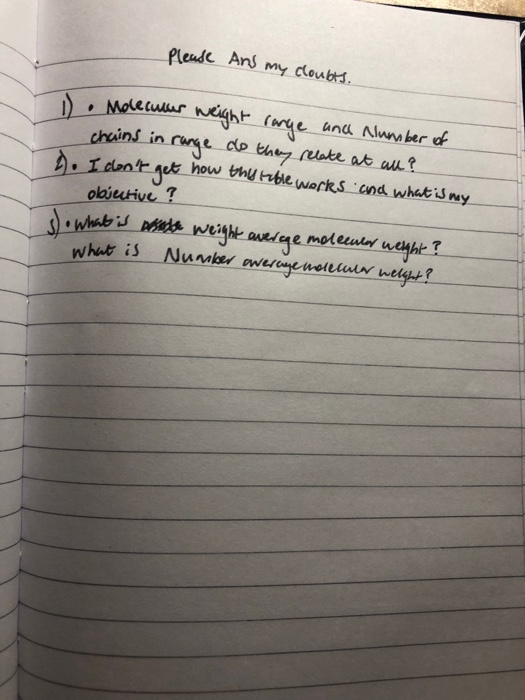 Please Ans my doubts.
1) • Molecular weight range and Number of
chains in range do they relate at all?
2). • I don't get how this table works and what is my
objective?
3) • what is weight average molecular weight?
What is Number average molecular weight?